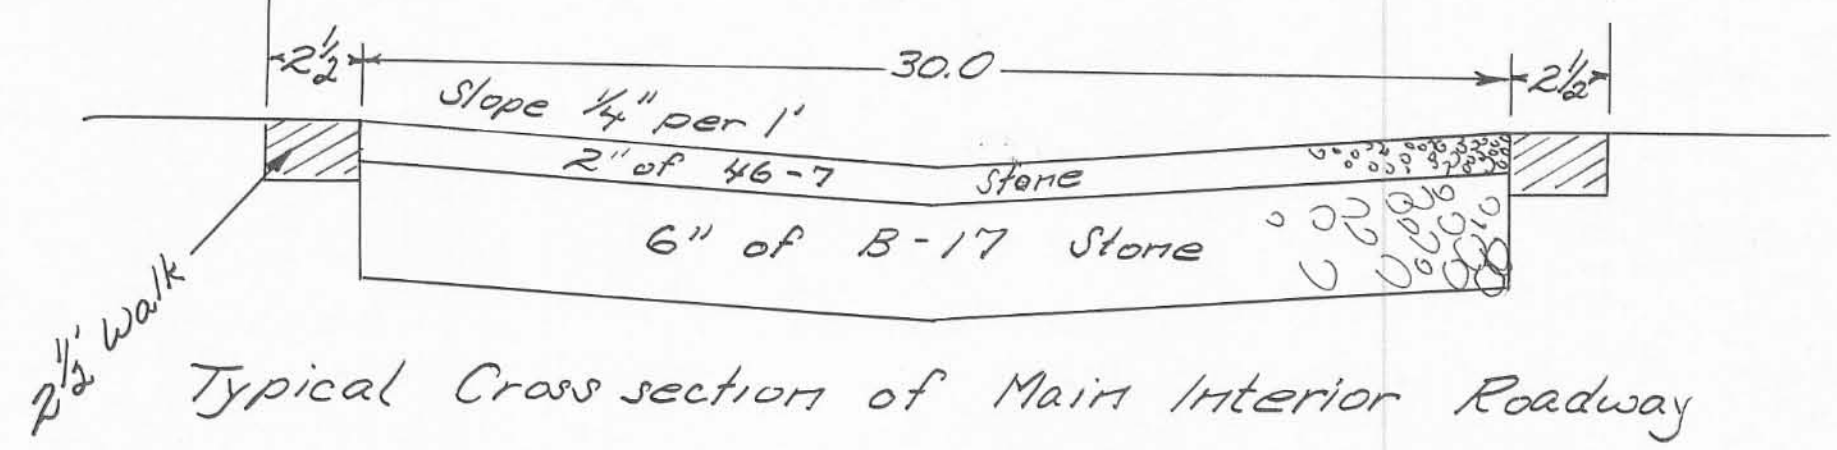 2½ 30.0 2½
Slope ¼" per 1'
2" of 46-7 stone
6" of B-17 Stone
2½' walk
Typical Cross section of Main Interior Roadway